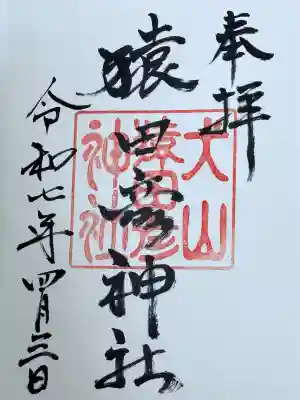 奉拝
猿田彦神社
犬山
猿田彦
神社
令和七年四月三日